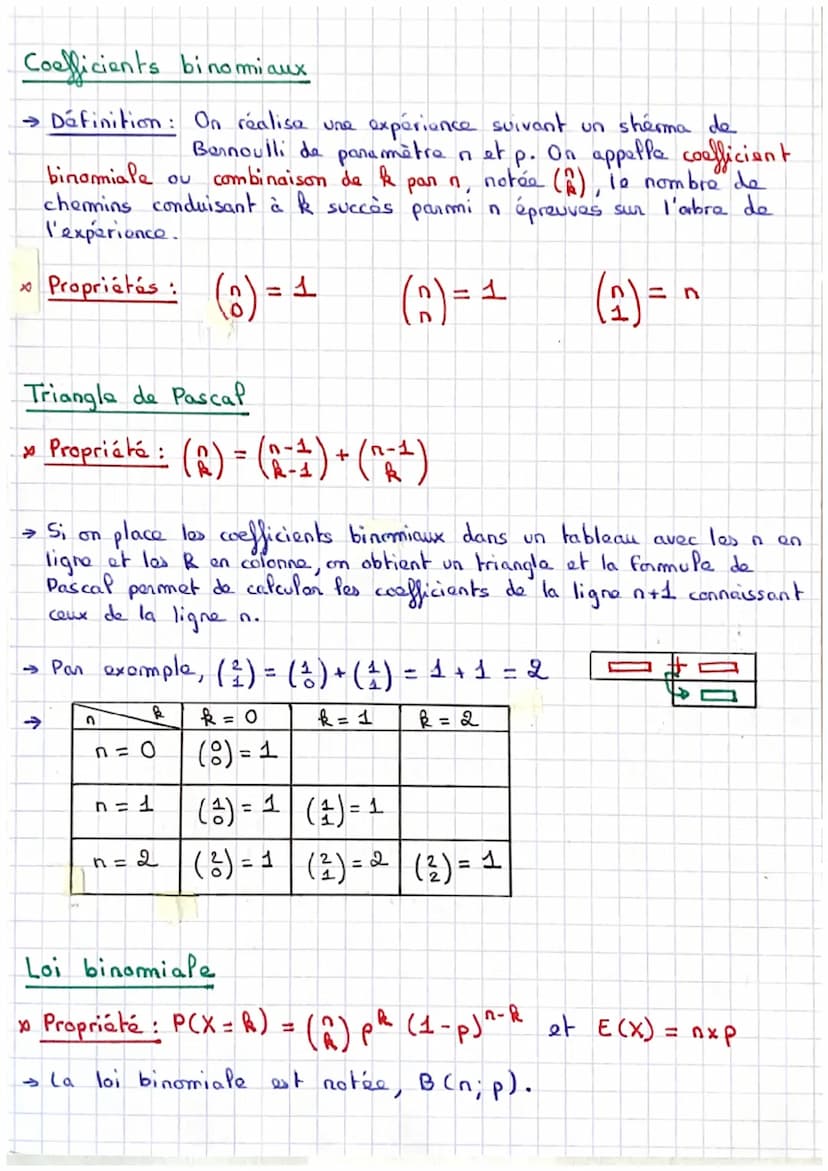 Coefficients binomiaux
→ Définition : On réalise une expérience suivant un shéma de
Bernoulli de paramètre n et p. On appelle coefficient
binomiale ou combinaison de k par n, notée (n k), le nombre de
chemins conduisant à k succès parmi n épreuves sur l'arbre de
l'expérience.
Propriétés : (n 0) = 1 (n n) = 1 (n 1) = n
Triangle de Pascal
Propriété : (n k) = (n-1 k-1) + (n-1 k)
→ Si on place les coefficients binomiaux dans un tableau avec les n en
ligne et les k en colonne, on obtient un triangle et la formule de
Pascal permet de calculer les coefficients de la ligne n+1 connaissant
ceux de la ligne n.
→ Par exemple, (2 1) = (1 0) + (1 1) = 1 + 1 = 2
+
→ n k k = 0 k = 1 k = 2
n = 0 (0 0) = 1
n = 1 (1 0) = 1 (1 1) = 1
n = 2 (2 0) = 1 (2 1) = 2 (2 2) = 1
Loi binomiale
Propriété : P(X = k) = (n k) p^k (1-p)^n-k et E(X) = n×p
→ La loi binomiale est notée, B(n; p).